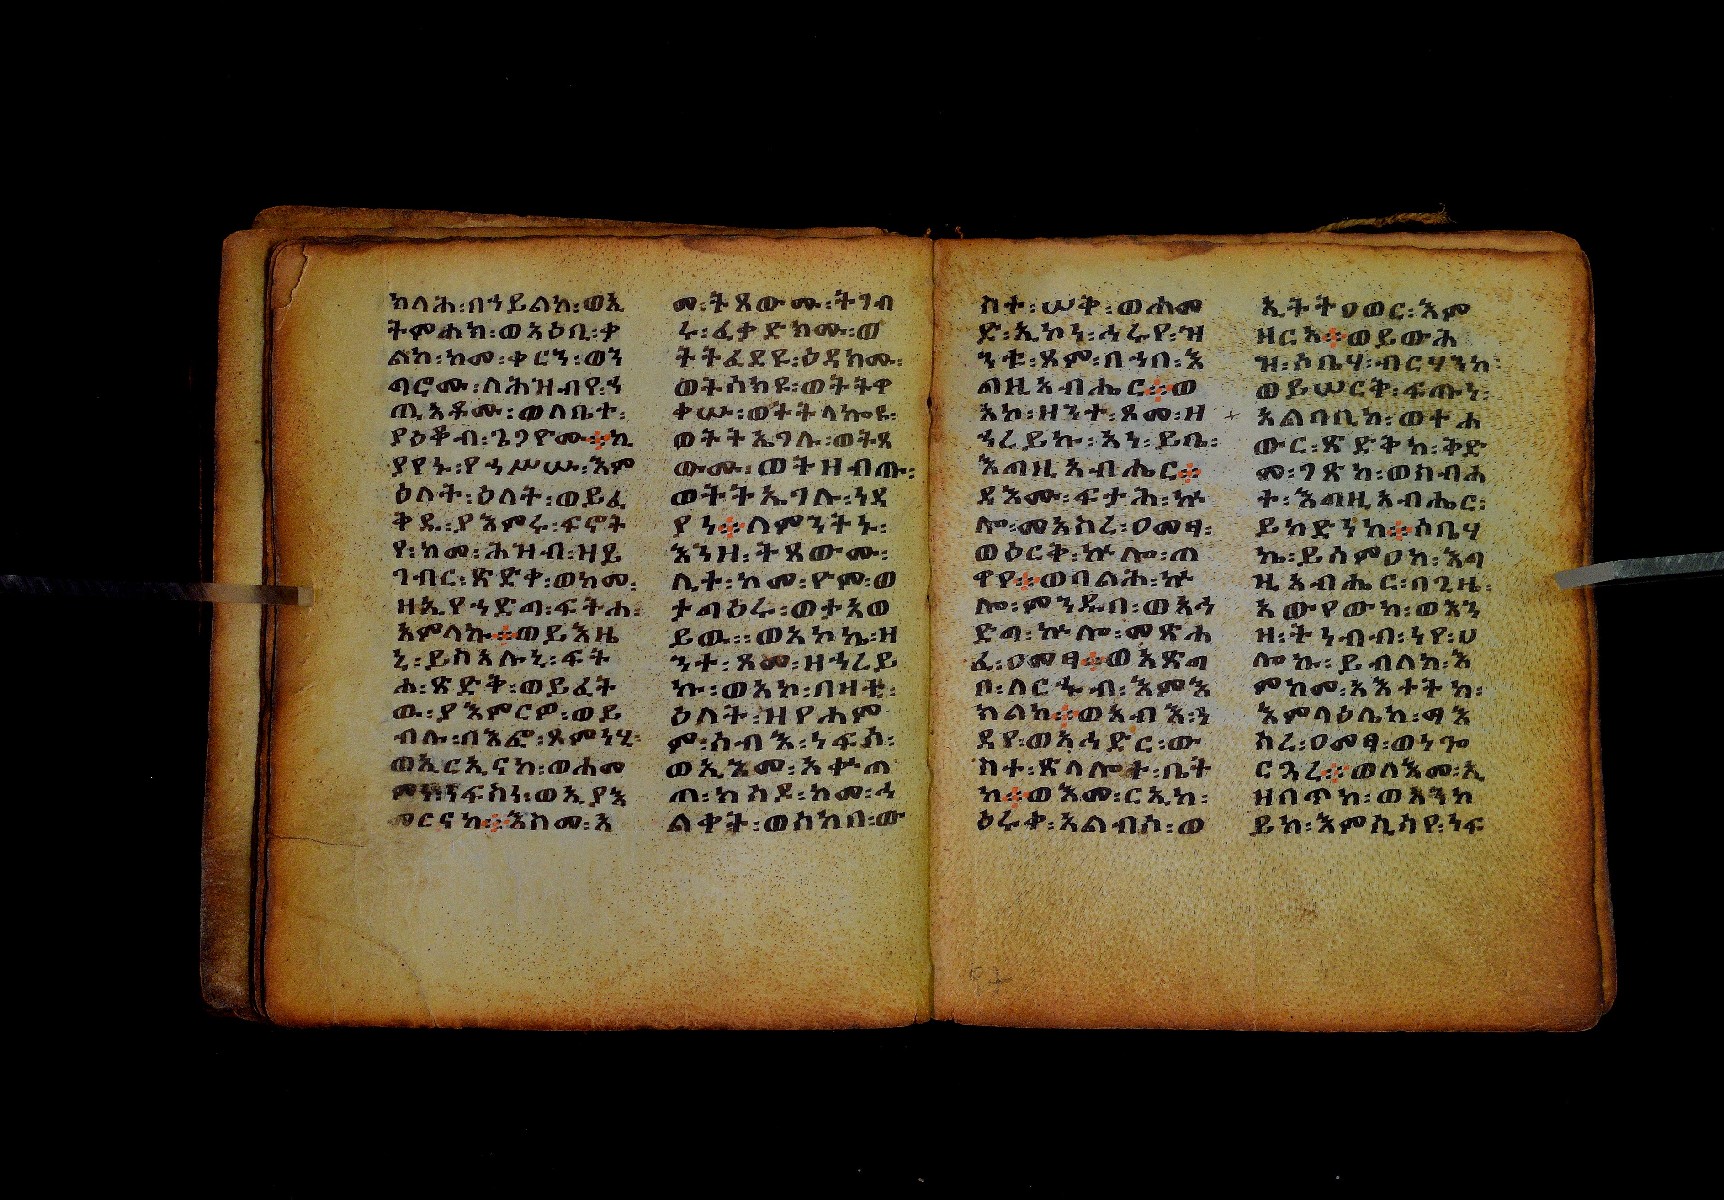 ክላሕ፡በኀይልከ፡ወኢ
ትምሐክ፡ወአዕቢ፡ቃ
ልከ፡ከመ፡ቀርን፡ወን
ግሮሙ፡ለሕዝብየ፡ኀ
ጢአቶሙ፡ወለቤተ፡
ያዕቆብ፡ጌጋዮሙ፨ኪ
ያየኑ፡የኀሥሡ፡እም
ዕለት፡ዕለት፡ወይፈ
ቅዱ፡ያእምሩ፡ፍኖት
የ፡ከመ፡ሕዝብ፡ዝይ
ገብር፡ጽድቀ፡ወከመ፡
ዘኢየኀድግ፡ፍትሐ፡
አምላኩ፨ወይእዜ
ኒ፡ይስእሉኒ፡ፍት
ሐ፡ጽድቅ፡ወይፈት
ዉ፡ያእምርዎ፡ወይ
ብሉ፡በእፎ፡ጾምነሂ፡
ወኢርኢናከ፡ወሐመ
ምነ፡ነፍስነ፡ወኢያእ
መርናከ፨እስመ፡አ
መ፡ትጸውሙ፡ትገብ
ሩ፡ፈቃድክሙ፡ወ
ትትፈደዩ፡ዕዳክሙ፡
ወትስክዩ፡ወትትዋ
ቀሡ፡ወትትላኰዩ፡
ወትትኤገሉ፡ወትጸ
ውሙ፡ወትዘብጡ፡
ወትትኤገሉ፡ነዳ
ያነ፨ለምንትኑ፡
እንዘ፡ትጸውሙ፡
ሊት፡ከመ፡ዮም፡ወ
ታግዕሩ፡ወተአወ
ይዉ፡፡ወአኮኬ፡ዘ
ንተ፡ጾመ፡ዘኀረይ
ኩ፡ወአኮ፡በዛቲ፡
ዕለት፡ዘየሐም
ም፡ሰብእ፡ነፍሶ፡
ወኢእመ፡አቍጠ
ጠ፡ክሳዶ፡ከመ፡ሓ
ልቀት፡ወሰከበ፡ው
ስተ፡ሠቅ፡ወሐመ
ድ፡ኢኮነ፡ሓሩየ፡ዝ
ንቱ፡ጾም፡በኀበ፡እ
ግዚአብሔር፨ወ
አኮ፡ዘንተ፡ጾመ፡ዘ
ኀረይኩ፡አነ፡ይቤ፡
እግዚአብሔር፨
ዳእሙ፡ፍታሕ፡ኵ
ሎ፡መአስረ፡ዐመፃ፡
ወዕርቅ፡ኵሎ፡ጠ
ዋየ፨ወባልሕ፡ኵ
ሎ፡ምንዱበ፡ወአኅ
ድግ፡ኵሎ፡መጽሐ
ፈ፡ዐመፃ፨ወአጽግ
በ፡ለርኁብ፡እምእ
ክልከ፨ወአብእ፡ነ
ዳየ፡ወአኅድር፡ው
ስተ፡ጽላሎት፡ቤት
ከ፨ወእመ፡ርኢከ፡
ዕሩቀ፡አልብሶ፡ወ
ኢትትዐወር፡እም
ዘርእ፨ወይውሕ
ዝ፡ሶቤሃ፡ብርሃንከ፡
ወይሠርቅ፡ፍጡነ፡
አልባቢከ፡ወተሐ
ውር፡ጽድቅከ፡ቅድ
መ፡ገጽከ፡ወስብሐ
ተ፡እግዚአብሔር፡
ይከድንከ፨ሶቤሃ
ኬ፡ይሰምዐከ፡እግ
ዚአብሔር፡በጊዜ፡
አውየውከ፡ወእን
ዘ፡ትነብብ፡ነየ፡ሀ
ሎኩ፡ይብለከ፡እ
ምከመ፡አእተትከ፡
እምላዕሌከ፡ማእ
ሰረ፡ዐመፃ፡ወነጐ
ርጓረ፨ወለእመ፡ኢ
ዘበጥከ፡ወእንከ
ይከ፡እምሲሳየ፡ነፍ